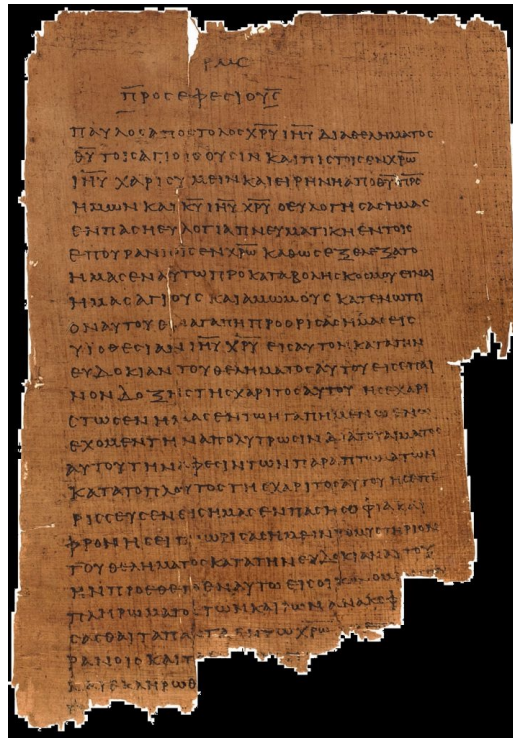 ΡΜϹ
ΠΡΟϹ ΕΦΕϹΙΟΥϹ
ΠΑΥΛΟϹ ΑΠΟϹΤΟΛΟϹ ΧΡΥ ΙΗΥ ΔΙΑ ΘΕΛΗΜΑΤΟϹ
ΘΥ ΤΟΙϹ ΑΓΙΟΙϹ ΟΥϹΙΝ ΚΑΙ ΠΙϹΤΟΙϹ ΕΝ ΧΡΩ
ΙΗΥ ΧΑΡΙϹ ΥΜΕΙΝ ΚΑΙ ΕΙΡΗΝΗ ΑΠΟ ΘΥ ΠΡϹ
ΗΜΩΝ ΚΑΙ ΚΥ ΙΗΥ ΧΡΥ Ο ΕΥΛΟΓΗϹΑϹ ΗΜΑϹ
ΕΝ ΠΑϹΗ ΕΥΛΟΓΙΑ ΠΝΕΥΜΑΤΙΚΗ ΕΝ ΤΟΙϹ
ΕΠΟΥΡΑΝΙΟΙϹ ΕΝ ΧΡΩ ΚΑΘΩϹ ΕΞΕΛΕΞΑΤΟ
ΗΜΑϹ ΕΝ ΑΥΤΩ ΠΡΟ ΚΑΤΑΒΟΛΗϹ ΚΟϹΜΟΥ ΕΙΝΑΙ
ΗΜΑϹ ΑΓΙΟΥϹ ΚΑΙ ΑΜΩΜΟΥϹ ΚΑΤΕΝΩΠΙ
ΟΝ ΑΥΤΟΥ ΕΝ ΑΓΑΠΗ ΠΡΟΟΡΙϹΑϹ ΗΜΑϹ ΕΙϹ
ΥΙΟΘΕϹΙΑΝ ΙΗΥ ΧΡΥ ΕΙϹ ΑΥΤΟΝ ΚΑΤΑ ΤΗΝ
ΕΥΔΟΚΙΑΝ ΤΟΥ ΘΕΛΗΜΑΤΟϹ ΑΥΤΟΥ ΕΙϹ ΕΠΑΙ
ΝΟΝ ΔΟΞΗϹ ΤΗϹ ΧΑΡΙΤΟϹ ΑΥΤΟΥ ΗϹ ΕΧΑΡΙ
ϹΤΩϹΕΝ ΗΜΑϹ ΕΝ ΤΩ ΗΓΑΠΗΜΕΝΩ ΕΝ Ω
ΕΧΟΜΕΝ ΤΗΝ ΑΠΟΛΥΤΡΩϹΙΝ ΔΙΑ ΤΟΥ ΑΙΜΑΤΟϹ
ΑΥΤΟΥ ΤΗΝ ΑΦΕϹΙΝ ΤΩΝ ΠΑΡΑΠΤΩΜΑΤΩΝ
ΚΑΤΑ ΤΟ ΠΛΟΥΤΟϹ ΤΗϹ ΧΑΡΙΤΟϹ ΑΥΤΟΥ ΗϹ ΕΠΕ
ΡΙϹϹΕΥϹΕΝ ΕΙϹ ΗΜΑϹ ΕΝ ΠΑϹΗ ϹΟΦΙΑ ΚΑΙ
ΦΡΟΝΗϹΕΙ ΓΝΩΡΙϹΑϹ ΗΜΕΙΝ ΤΟ ΜΥϹΤΗΡΙΟΝ
ΤΟΥ ΘΕΛΗΜΑΤΟϹ ΚΑΤΑ ΤΗΝ ΕΥΔΟΚΙΑΝ ΑΥΤΟΥ
ΗΝ ΠΡΟΕΘΕΤΟ ΕΝ ΑΥΤΩ ΕΙϹ
ΠΛΗΡΩΜΑΤΟϹ ΤΩΝ ΚΑΙΡΩΝ ΑΝΑΚΕΦ
ϹΑϹΘΑΙ ΤΑ ΠΑΝΤΑ ΕΝ ΤΩ ΧΡΩ
ΡΑΝΟΙϹ ΚΑΙ
ΕΚΛΗΡΩΘ